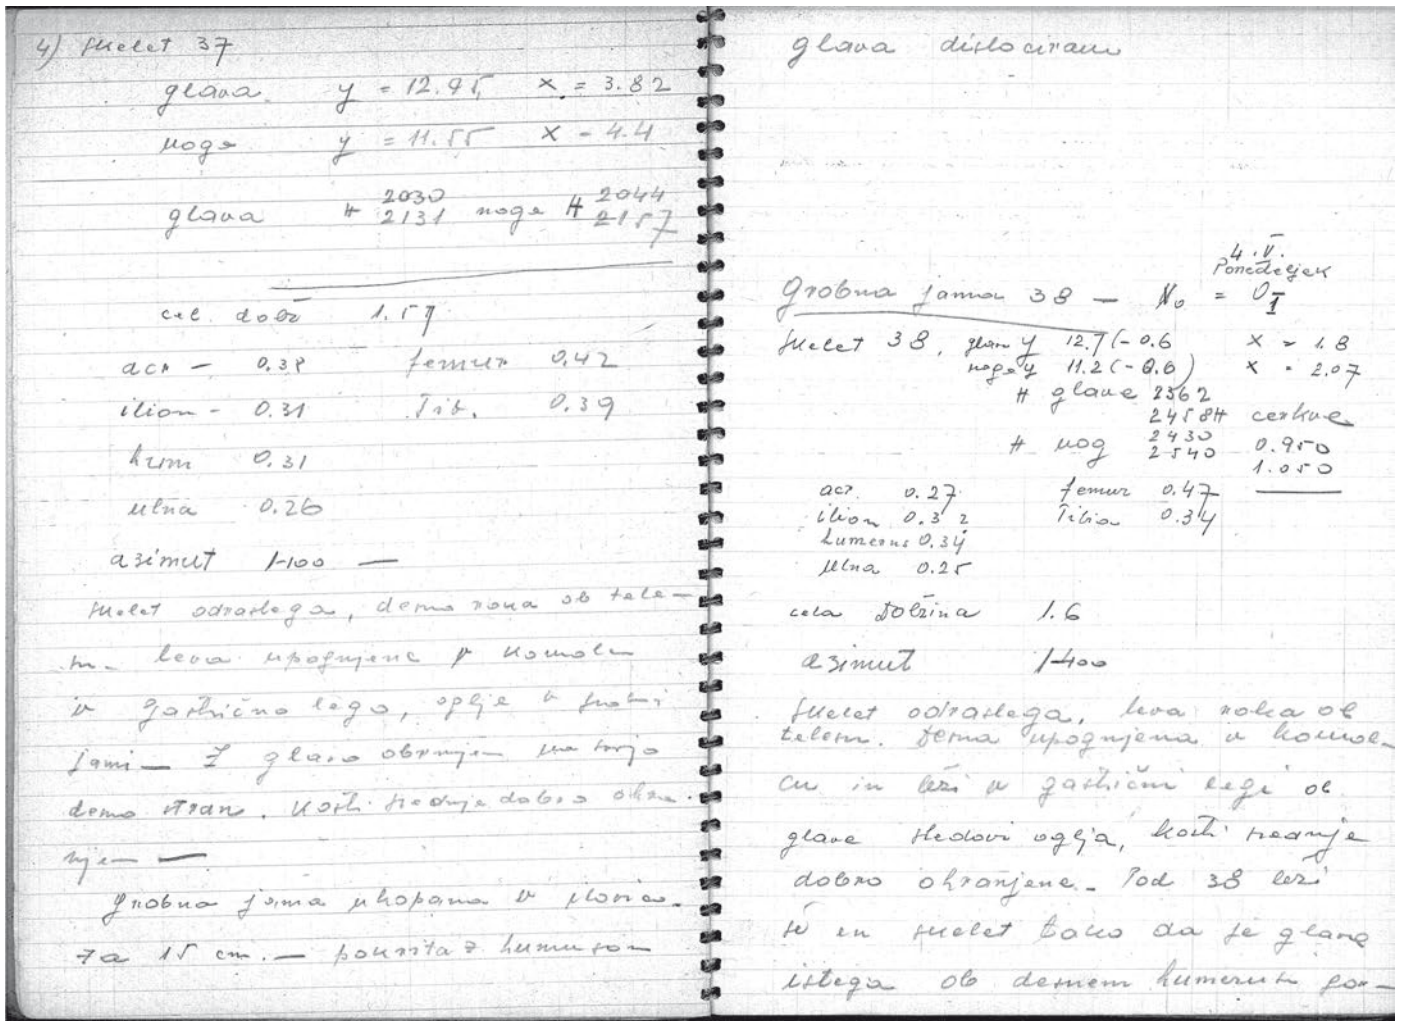 4) skelet 37
glava y = 12.95 x = 3.82
noge y = 11.55 x = 4.4
2030 2044
glava H 2131 noge H 2157
cel. dolž 1.57
acr - 0.38 femur 0.42
ilion - 0.31 Tib. 0.39
hum 0.31
ulna 0.26
azimut 1-100 —
skelet odraslega, desna roka ob tele-
su. leva upognjena v komolcu
v gastrično lego, oglje v grobni
jami — Z glavo obrnjen na svojo
desno stran. Kosti srednje dobro ohra-
njene —
grobna jama vkopana v ilovico
za 15 cm. — pokrita z humusom
glava dislocirana
4. V.
Ponedeljek
Grobna jama 38 — No = 0I
skelet 38, glava y 12.7 (- 0.6 x = 1.8
noge y 11.2 (- 0.6) x = 2.07
H glave 2362
2458 H cerkve
H nog 2430 0.950
2540 1.050
acr. 0.27 femur 0.47
ilion 0.32 Tibia 0.34
humerus 0.34
ulna 0.25
cela Dolžina 1.6
azimut 1-400
skelet odraslega, leva roka ob
telesu. Desna upognjena v komol-
cu in leži v gastrični legi ob
glave sledovi oglja, kosti srednje
dobro ohranjene. Pod 38 leži
še en skelet tako da je glava
istega ob desnem humerusu